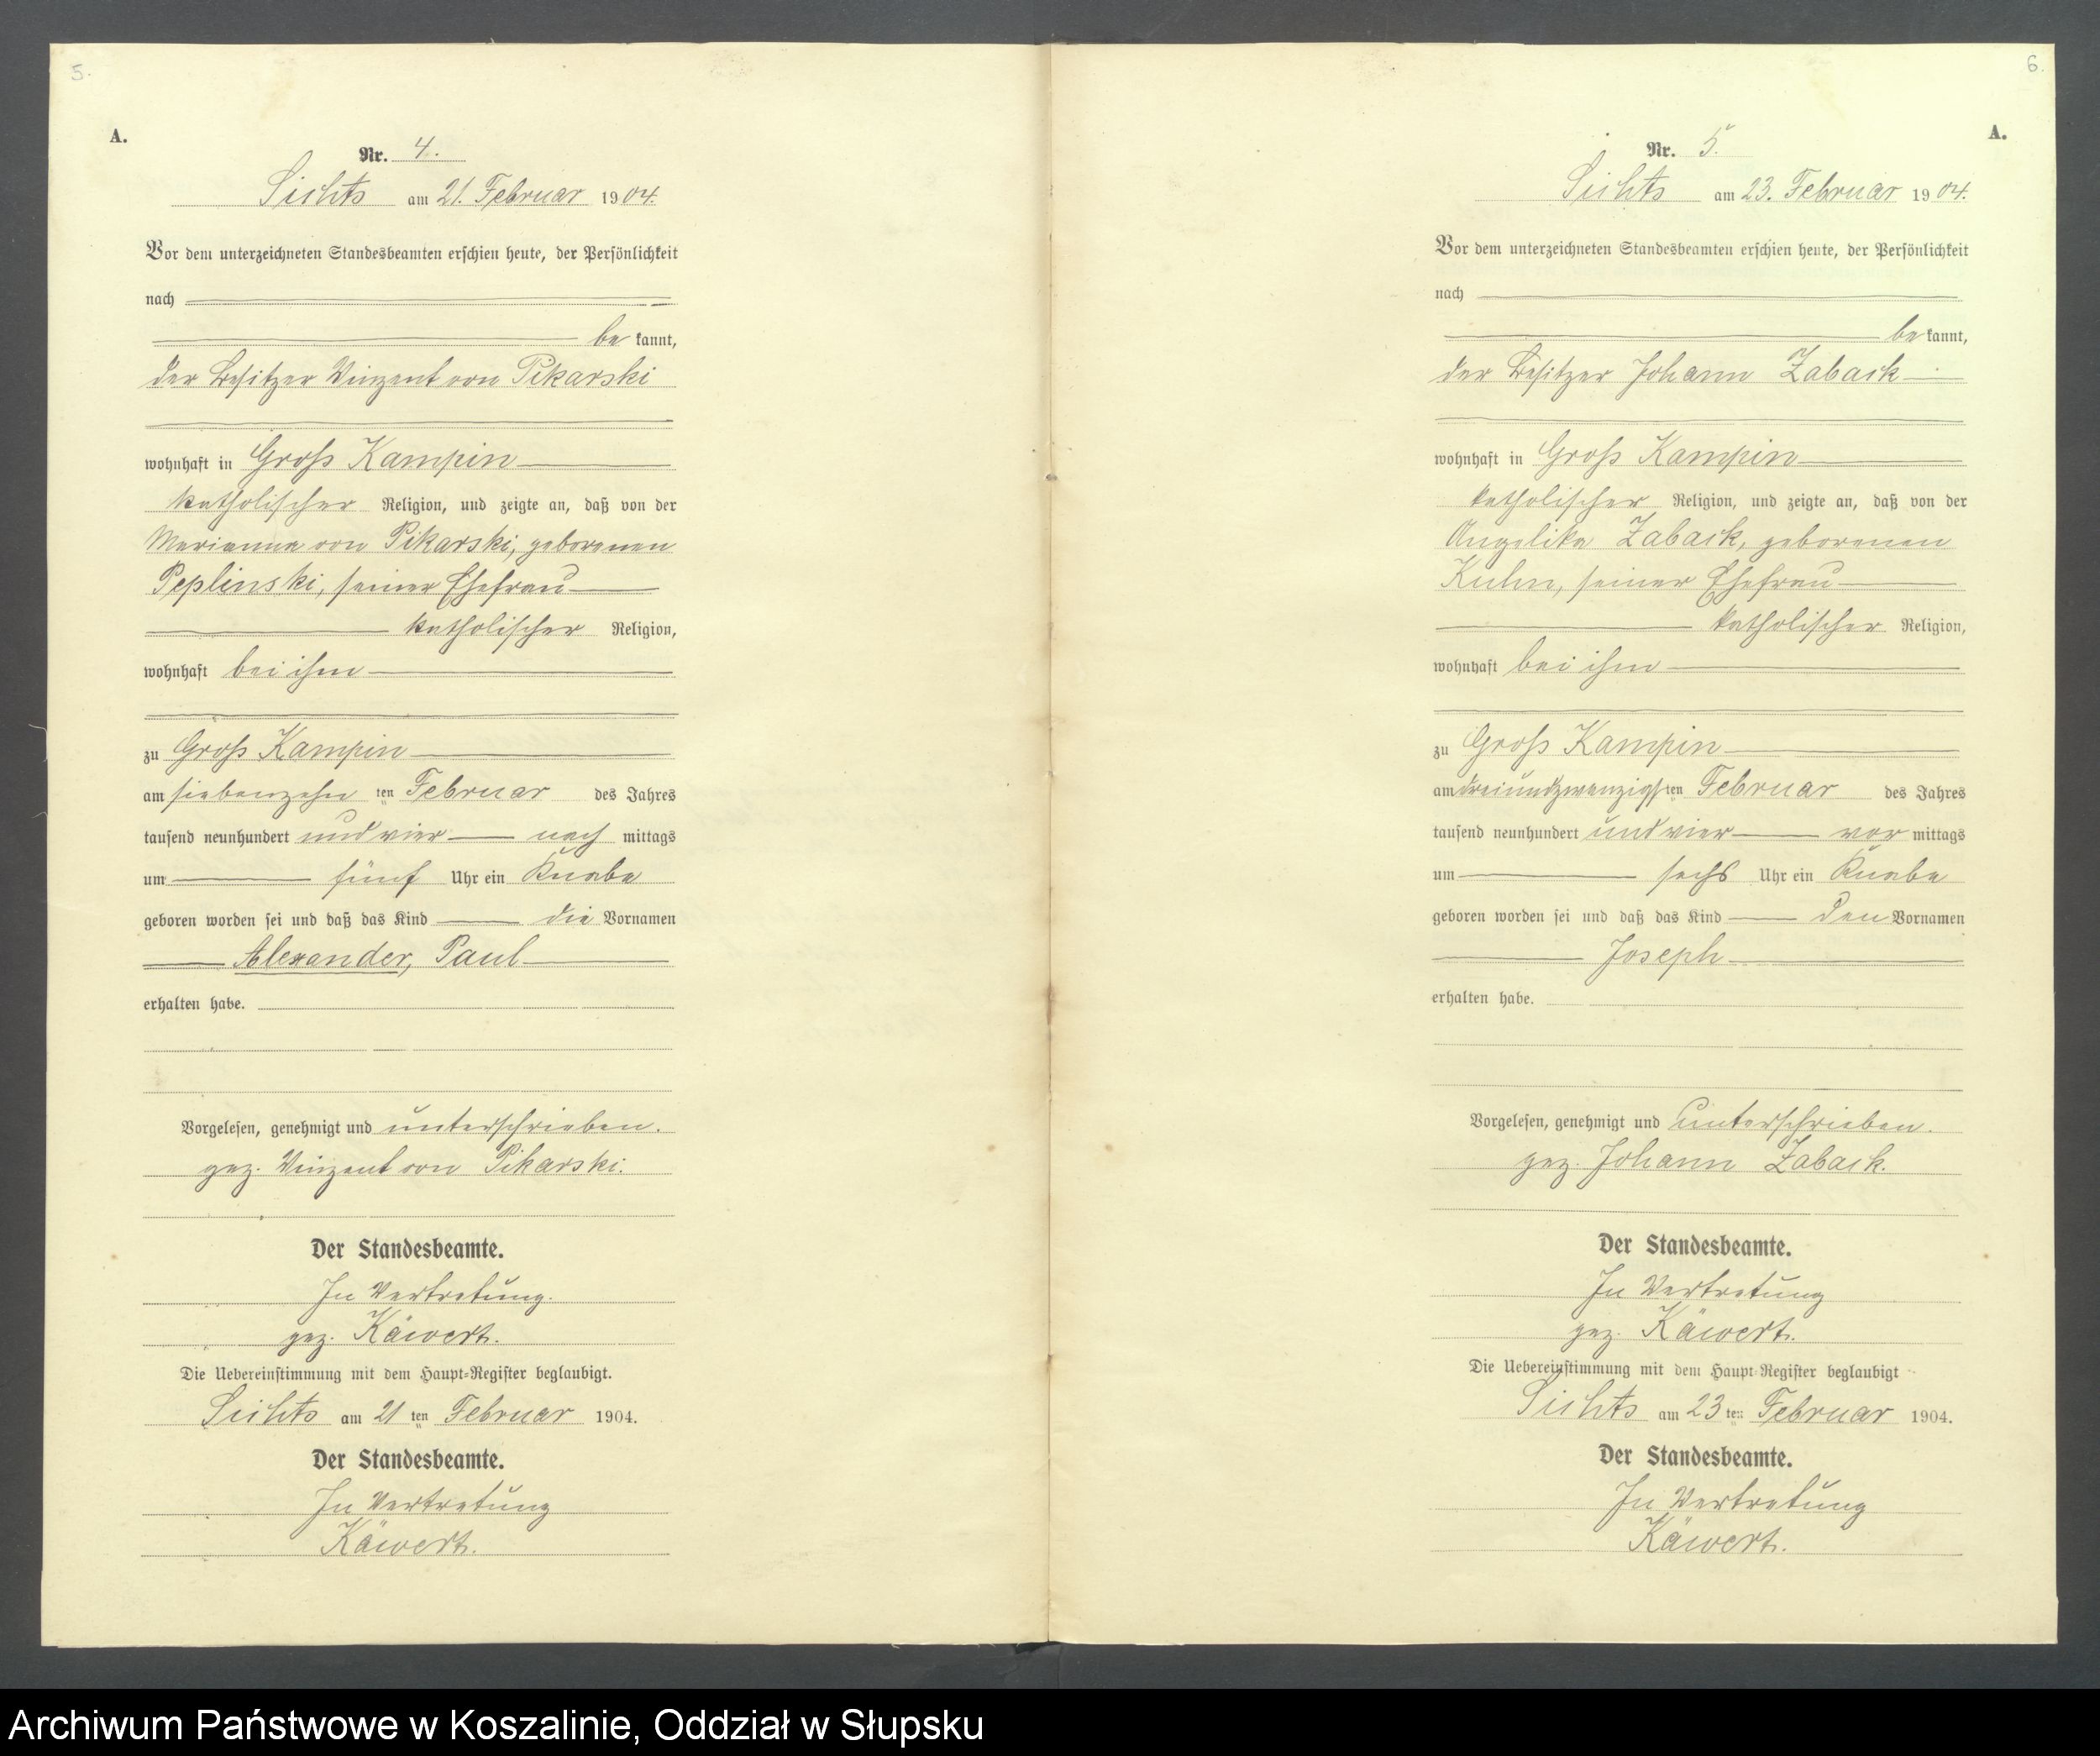 5.
A.
Nr. 4.
Sichts am 21. Februar 1904.
Vor dem unterzeichneten Standesbeamten erschien heute, der Persönlichkeit
nach
be kannt,
der Besitzer Vinzent von Pikarski
wohnhaft in Groß Kampin
katholischer Religion, und zeigte an, daß von der
Marianna von Pikarski, geborenen
Peplinski, seiner Ehefrau
katholischer Religion,
wohnhaft bei ihm
zu Groß Kampin
am siebenzehn ten Februar des Jahres
tausend neunhundert und vier nach mittags
um fünf Uhr ein Knabe
geboren worden sei und daß das Kind die Vornamen
Alexander, Paul
erhalten habe.
Vorgelesen, genehmigt und unterschrieben.
gez. Vinzent von Pikarski.
Der Standesbeamte.
In Vertretung.
gez. Käwert.
Die Uebereinstimmung mit dem Haupt-Register beglaubigt.
Sichts am 21 ten Februar 1904.
Der Standesbeamte.
In Vertretung
Käwert.
6.
A.
Nr. 5.
Sichts am 23. Februar 1904.
Vor dem unterzeichneten Standesbeamten erschien heute, der Persönlichkeit
nach
be kannt,
der Besitzer Johann Zaback
wohnhaft in Groß Kampin
katholischer Religion, und zeigte an, daß von der
Angelika Zaback, geborenen
Kuhn, seiner Ehefrau
katholischer Religion,
wohnhaft bei ihm
zu Groß Kampin
am dreiundzwanzigsten Februar des Jahres
tausend neunhundert und vier vor mittags
um sechs Uhr ein Knabe
geboren worden sei und daß das Kind den Vornamen
Joseph
erhalten habe.
Vorgelesen, genehmigt und unterschrieben.
gez. Johann Zaback.
Der Standesbeamte.
In Vertretung
gez. Käwert.
Die Uebereinstimmung mit dem Haupt-Register beglaubigt
Sichts am 23 ten Februar 1904.
Der Standesbeamte.
In Vertretung
Käwert.
Archiwum Państwowe w Koszalinie, Oddział w Słupsku